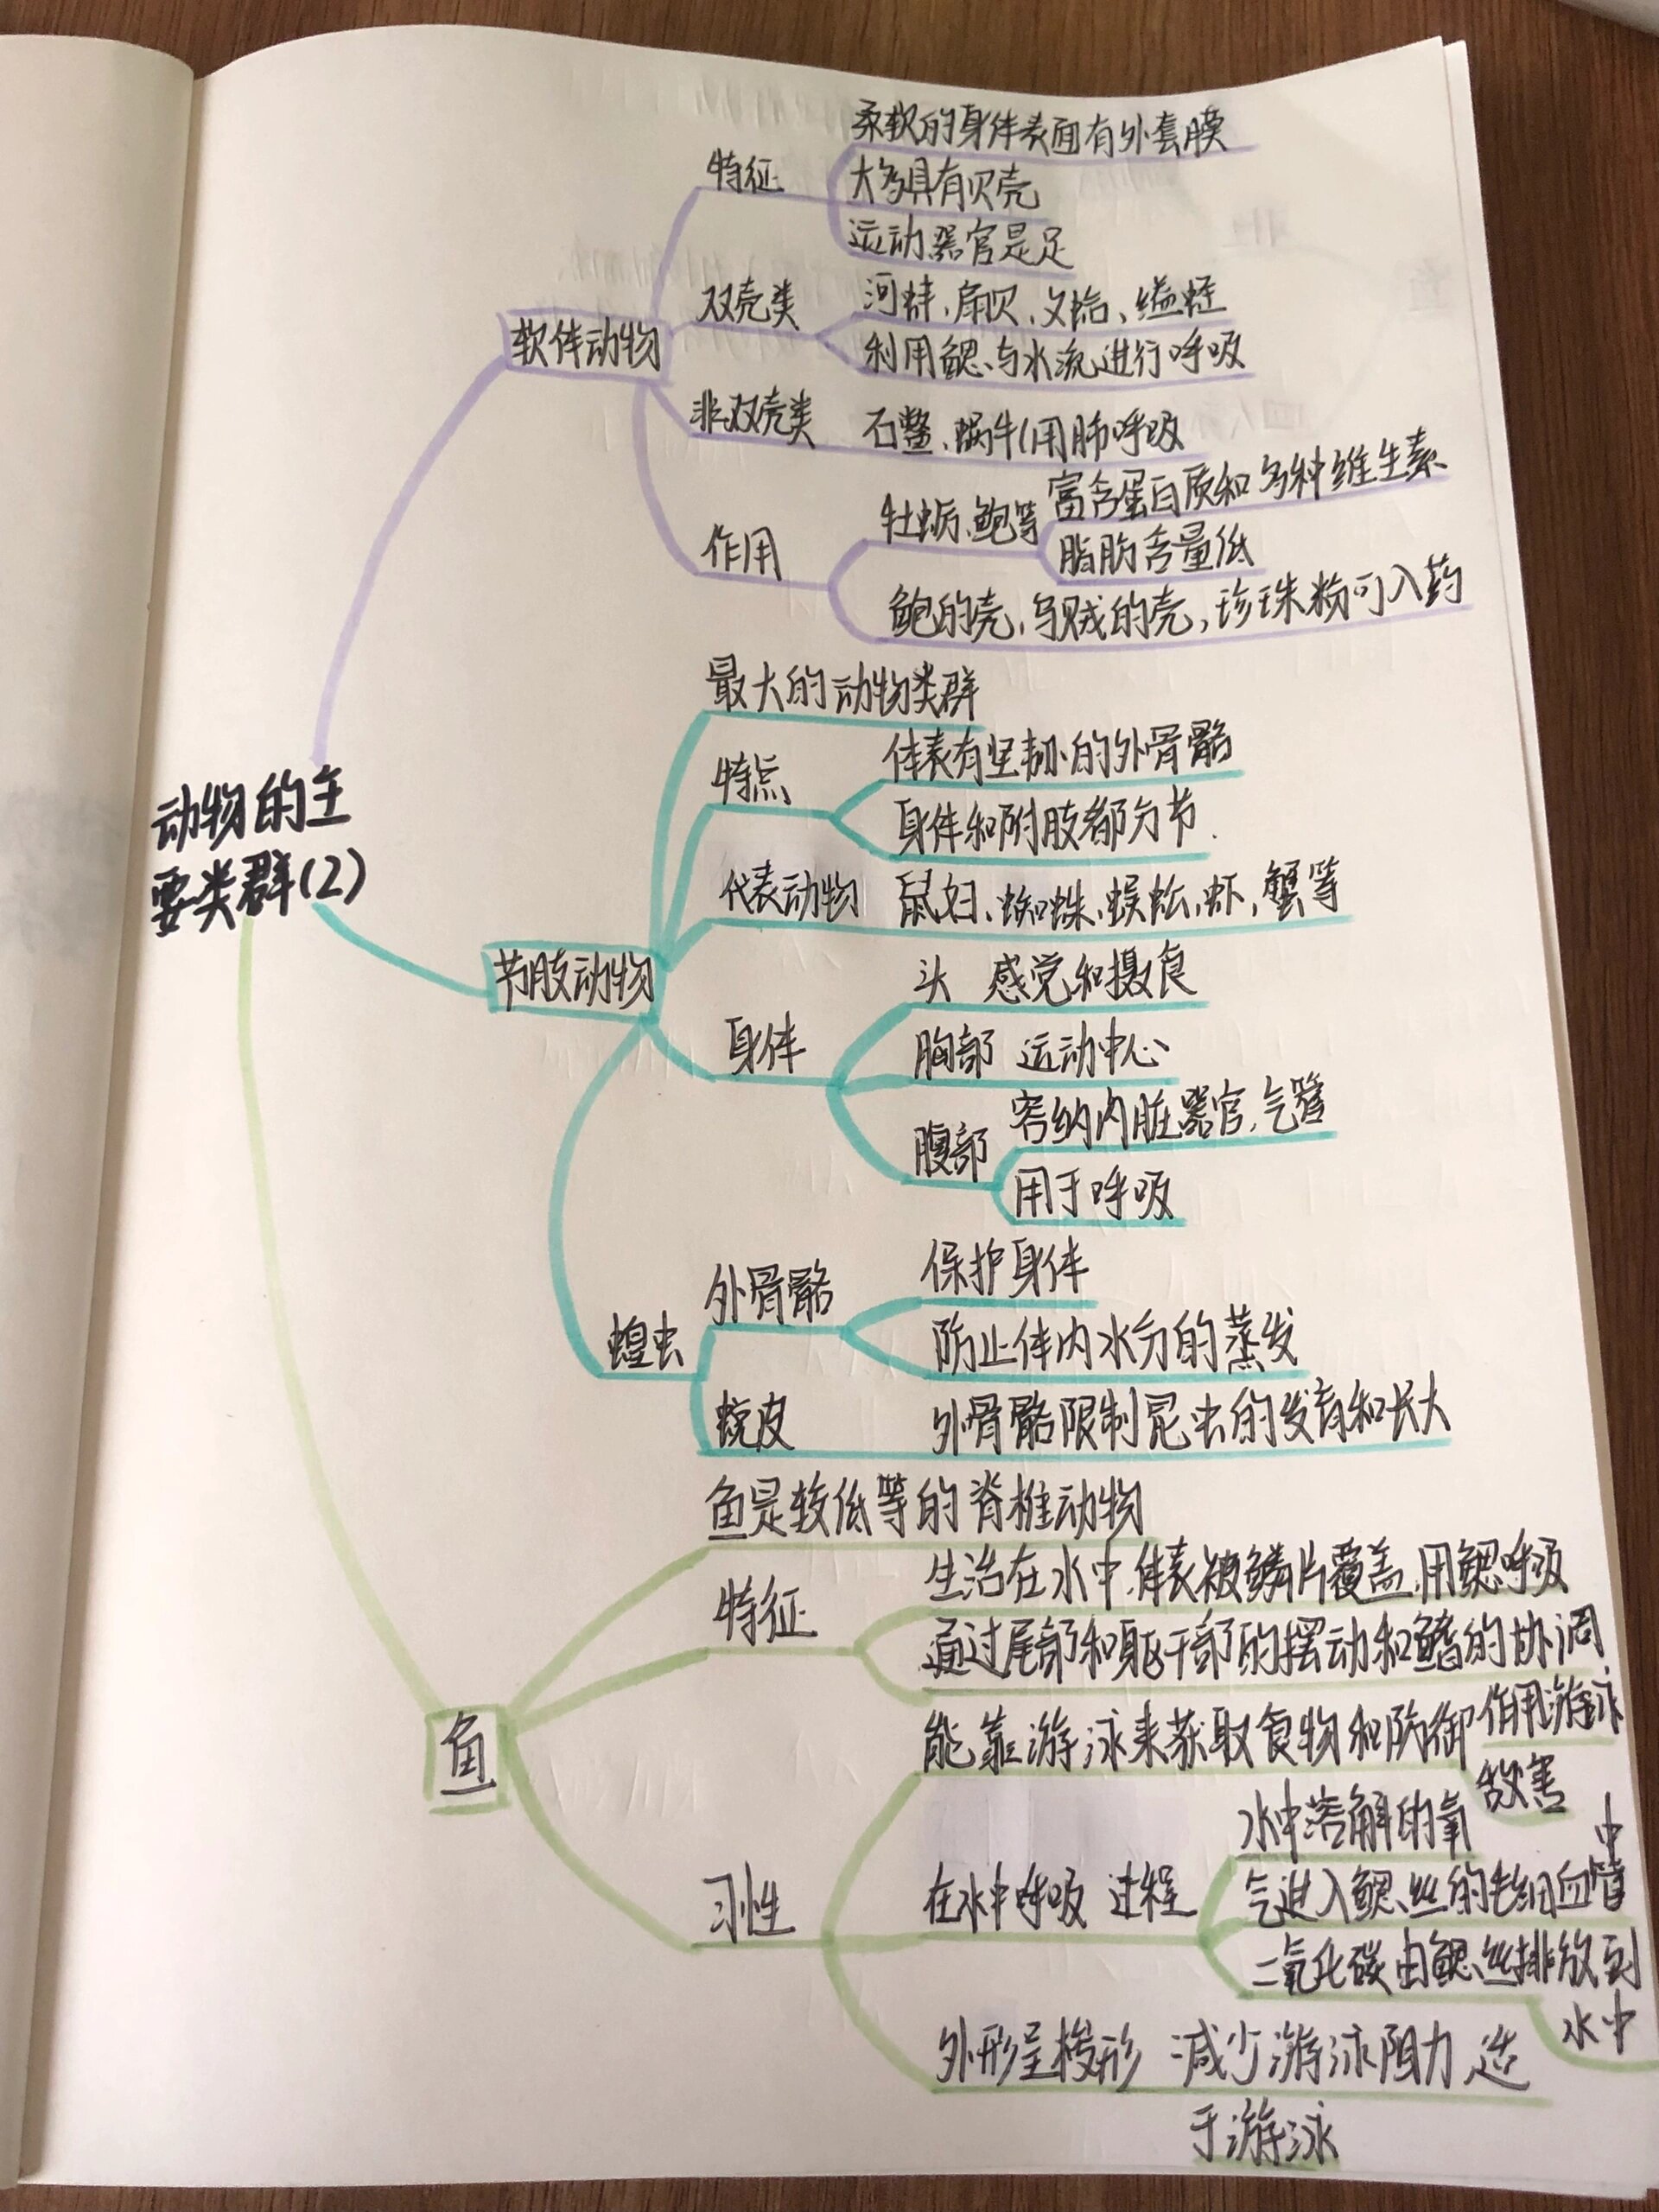 柔软的身体表面有外套膜
特征
大多具有贝壳
运动器官是足
双壳类
河蚌、扇贝、文蛤、缢蛏
软体动物
利用鳃与水流进行呼吸
非双壳类
石鳖、蜗牛(用肺呼吸
富含蛋白质和多种维生素
牡蛎、鲍等
脂肪含量低
作用
鲍的壳、乌贼的壳,珍珠粉可入药
动物的主
要类群(2)
最大的动物类群
特点
体表有坚韧的外骨骼
身体和附肢都分节.
代表动物
鼠妇、蜘蛛、蜈蚣、虾,蟹等
节肢动物
身体
头 感觉和摄食
胸部 运动中心
腹部
容纳内脏器官,气管
用于呼吸
蝗虫
外骨骼
保护身体
防止体内水分的蒸发
蜕皮
外骨骼限制昆虫的发育和长大
鱼
鱼是较低等的脊椎动物
特征
生活在水中,体表被鳞片覆盖,用鳃呼吸
通过尾部和躯干部的摆动和鳍的协调
作用游泳
习性
能靠游泳来获取食物和防御
敌害
在水中呼吸 过程
水中溶解的氧
气进入鳃丝的毛细血管
中
二氧化碳由鳃丝排放到
水中
外形呈梭形 减少游泳阻力 适
于游泳